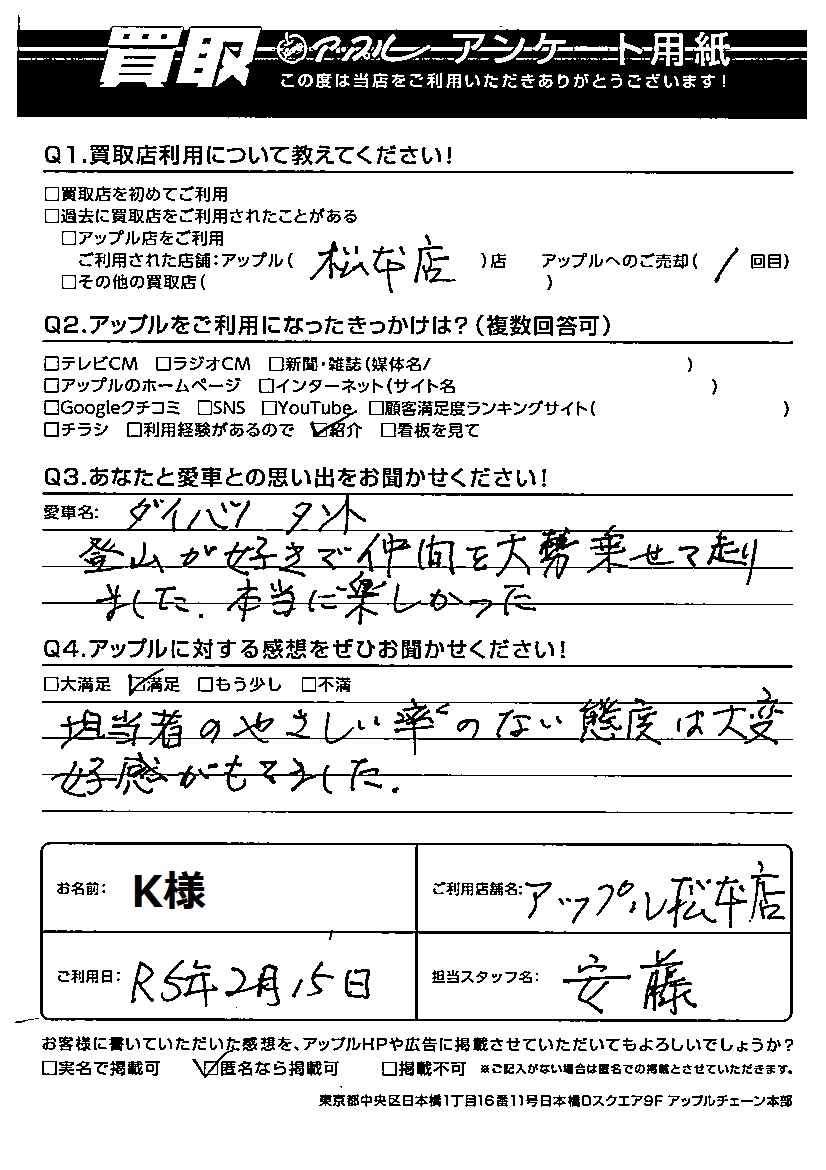 買取 アップル アンケート用紙
この度は当店をご利用いただきありがとうございます!
Q1.買取店利用について教えてください!
□買取店を初めてご利用
□過去に買取店をご利用されたことがある
□アップル店をご利用
ご利用された店舗:アップル( 松本店 )店 アップルへのご売却( / 回目)
□その他の買取店( )
Q2.アップルをご利用になったきっかけは?(複数回答可)
□テレビCM □ラジオCM □新聞・雑誌(媒体名/ )
□アップルのホームページ □インターネット(サイト名 )
□Googleクチコミ □SNS □YouTube □顧客満足度ランキングサイト( )
□チラシ □利用経験があるので ☑紹介 □看板を見て
Q3.あなたと愛車との思い出をお聞かせください!
愛車名: ダイハツ タント
登山が好きで仲間を大勢乗せて走り
ました. 本当に楽しかった
Q4.アップルに対する感想をぜひお聞かせください!
□大満足 ☑満足 □もう少し □不満
担当者のやさしい率くのない態度は大変
好感がもてました.
お名前: K様
ご利用店舗名: アップル松本店
ご利用日: R5年2月15日
担当スタッフ名: 安藤
お客様に書いていただいた感想を、アップルHPや広告に掲載させていただいてもよろしいでしょうか?
□実名で掲載可 ☑匿名なら掲載可 □掲載不可 ※ご記入がない場合は匿名での掲載とさせていただきます。
東京都中央区日本橋1丁目16番11号日本橋Dスクエア9F アップルチェーン本部